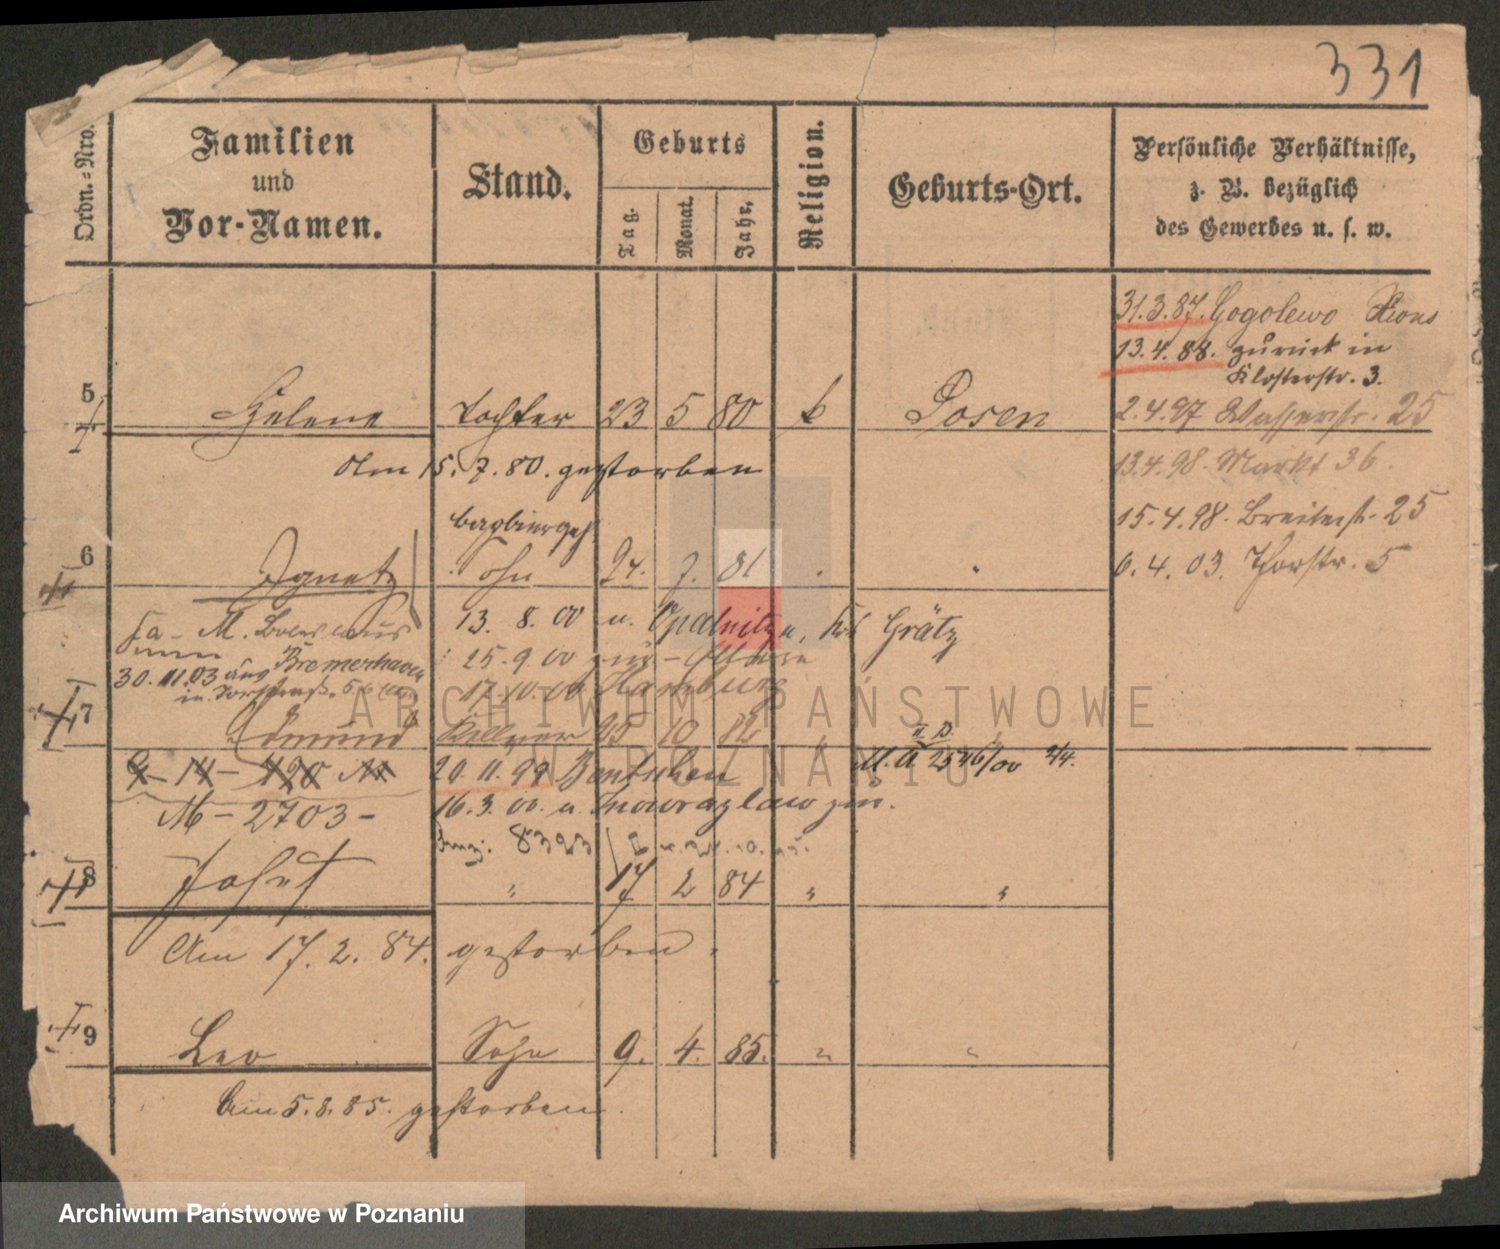 331
Ordn.=Nro.
Familien
und
Vor-Namen.
Stand.
Geburts
Tag.
Monat.
Jahr.
Religion.
Geburts-Ort.
Persönliche Verhältnisse,
z. B. bezüglich
des Gewerbes u. s. w.
31.3.87. Gogolewo Xions
13.4.88. zurück in
Klosterstr. 3.
2.4.97 Wasserstr. 25
13.4.98. Markt 36.
15.4.98. Breitestr. 25
6.4.03. Thorstr. 5
5 Helene Tochter 23 5 80 k Posen
Am 15.7.80. gestorben
6 Ignatz Sohn 24. 7. 81 " "
13. 8. 00 u. Opalenitza, Krs Grätz
25.9.00
30.11.03 aus Bremerhaven
17.10.00 Hamburg
7 Edmund Kellner 25 10 82
20.11.99 Bentschen
M-2703-
16.3.00. u. Inowrazlaw
8393
8 Josef " 17 2 84 " "
Am 17.2.84. gestorben.
9 Leo Sohn 9. 4. 85. " "
Am 5.8.85. gestorben.
ARCHIWUM PAŃSTWOWE
W POZNANIU
Archiwum Państwowe w Poznaniu